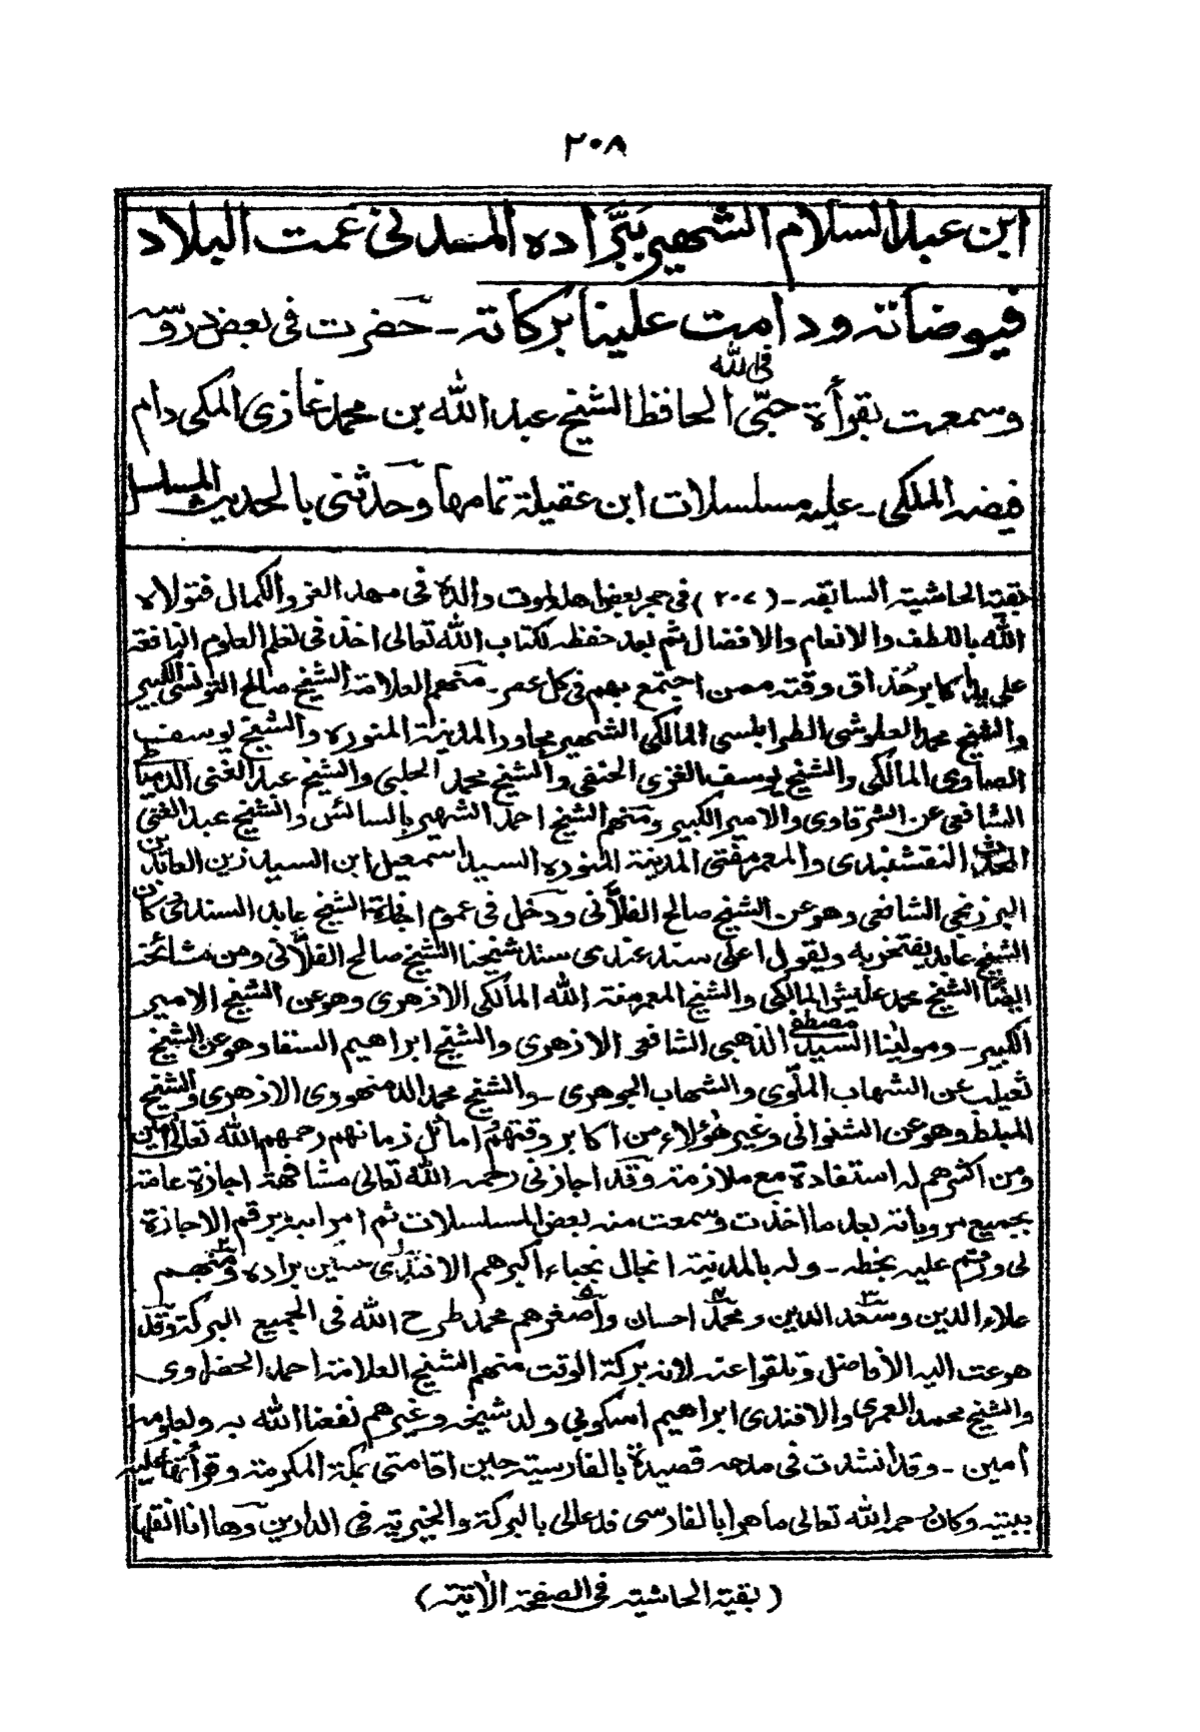 ٢٠٨
ابن عبد السلام الشهير ببَرَّاده المدنى عمت البلاد
فيوضاته ودامت علينا بركاته ـ حضرت فى بعض دروسه
وسمعت بقرأة حبّى فى الله الحافظ الشيخ عبد الله بن محمد غازى المكى دام
فيضه الملكى ـ عليه مسلسلات ابن عقيلة تمامها وحدثنى بالحديث المسلسل
بقية الحاشيته السابقه ـ (٢٠٧) فى حجر بعض اهله لموت والده فى مهد العز والكمال فتولاه
الله باللطف والانعام والافضال ثم بعد حفظه لكتاب الله تعالى اخذ فى تعلم العلوم النافعة
على يد اكابر حُذاق وقته ممن اجتمع بهم فى كل عصر ـ منهم العلامة الشيخ صالح التونسى الكبير
والشيخ محمد العلوشى الطرابلسى المالكى الشهير مجاور المدينة المنوره والشيخ يوسف
الصاوى المالكى والشيخ يوسف الغزى الحنفى والشيخ محمد الحلبى والشيخ عبد الغنى الدمياطى
الشافعى عن الشرقاوى والامير الكبير ومنهم الشيخ احمد الشهير بالسائس والشيخ عبد الغنى
المحدث النقشبندى والمعمر مفتى المدينة المنوره السيد اسمعيل ابن السيد زين العابدين
البرزنجى الشافعى وهو عن الشيخ صالح الفلّانى ودخل فى عموم اجازة الشيخ عابد السندى كان
الشيخ عابد يفتخر به ويقول اعلى سند عندى سند شيخنا الشيخ صالح الفلّانى ومن مشائخه
ايضًا الشيخ محمد عليش المالكى والشيخ المعمر منة الله المالكى الازهرى وهو عن الشيخ الامير
الكبير ـ ومولينا السيد مصطفى الذهبى الشافعى الازهرى والشيخ ابراهيم السقا وهو عن الشيخ
ثعيلب عن الشهاب الملّوى والشهاب الجوهرى ـ والشيخ محمد الدمنهورى الازهرى والشيخ
المبلط وهو عن الشنوانى وغير هؤلاء من اكابر وقتهم اماثل زمانهم رحمهم الله تعالى امين
ومن اكثرهم له استفادة مع ملازمته وقد اجازنى رحمه الله تعالى مشافهة اجازة عامة
بجميع مروياته بعد ما اخذت وسمعت منه بعض المسلسلات ثم امر ابنه برقم الاجازة
لى ورقم عليه بخطه ـ وله بالمدنية انجال نجباء اكبرهم الافندى براده ومنهم
علاء الدين وسعد الدين ومحمد احسان واصغرهم محمد طرح الله فى الجميع البركة وقد
هرعت اليه الافاضل وتلقوا عنه لانه بركة الوقت منهم الشيخ العلامة احمد الحضراوى
والشيخ محمد العمرى والافندى ابراهيم اسكوبى ولد شيخه وغيرهم نفعنا الله به ولعلومه
امين ـ وقد انشدت فى مدحه قصيدة بالفارسية حين اقامتى بمكة المكرمة وقرأتها عليه
ببيته وكان رحمه الله تعالى ماهرا بالفارسى فدعالى بالبركة والخيرية فى الدارين وها انا انقلها
(بقية الحاشيته فى الصفحة الأتيته)